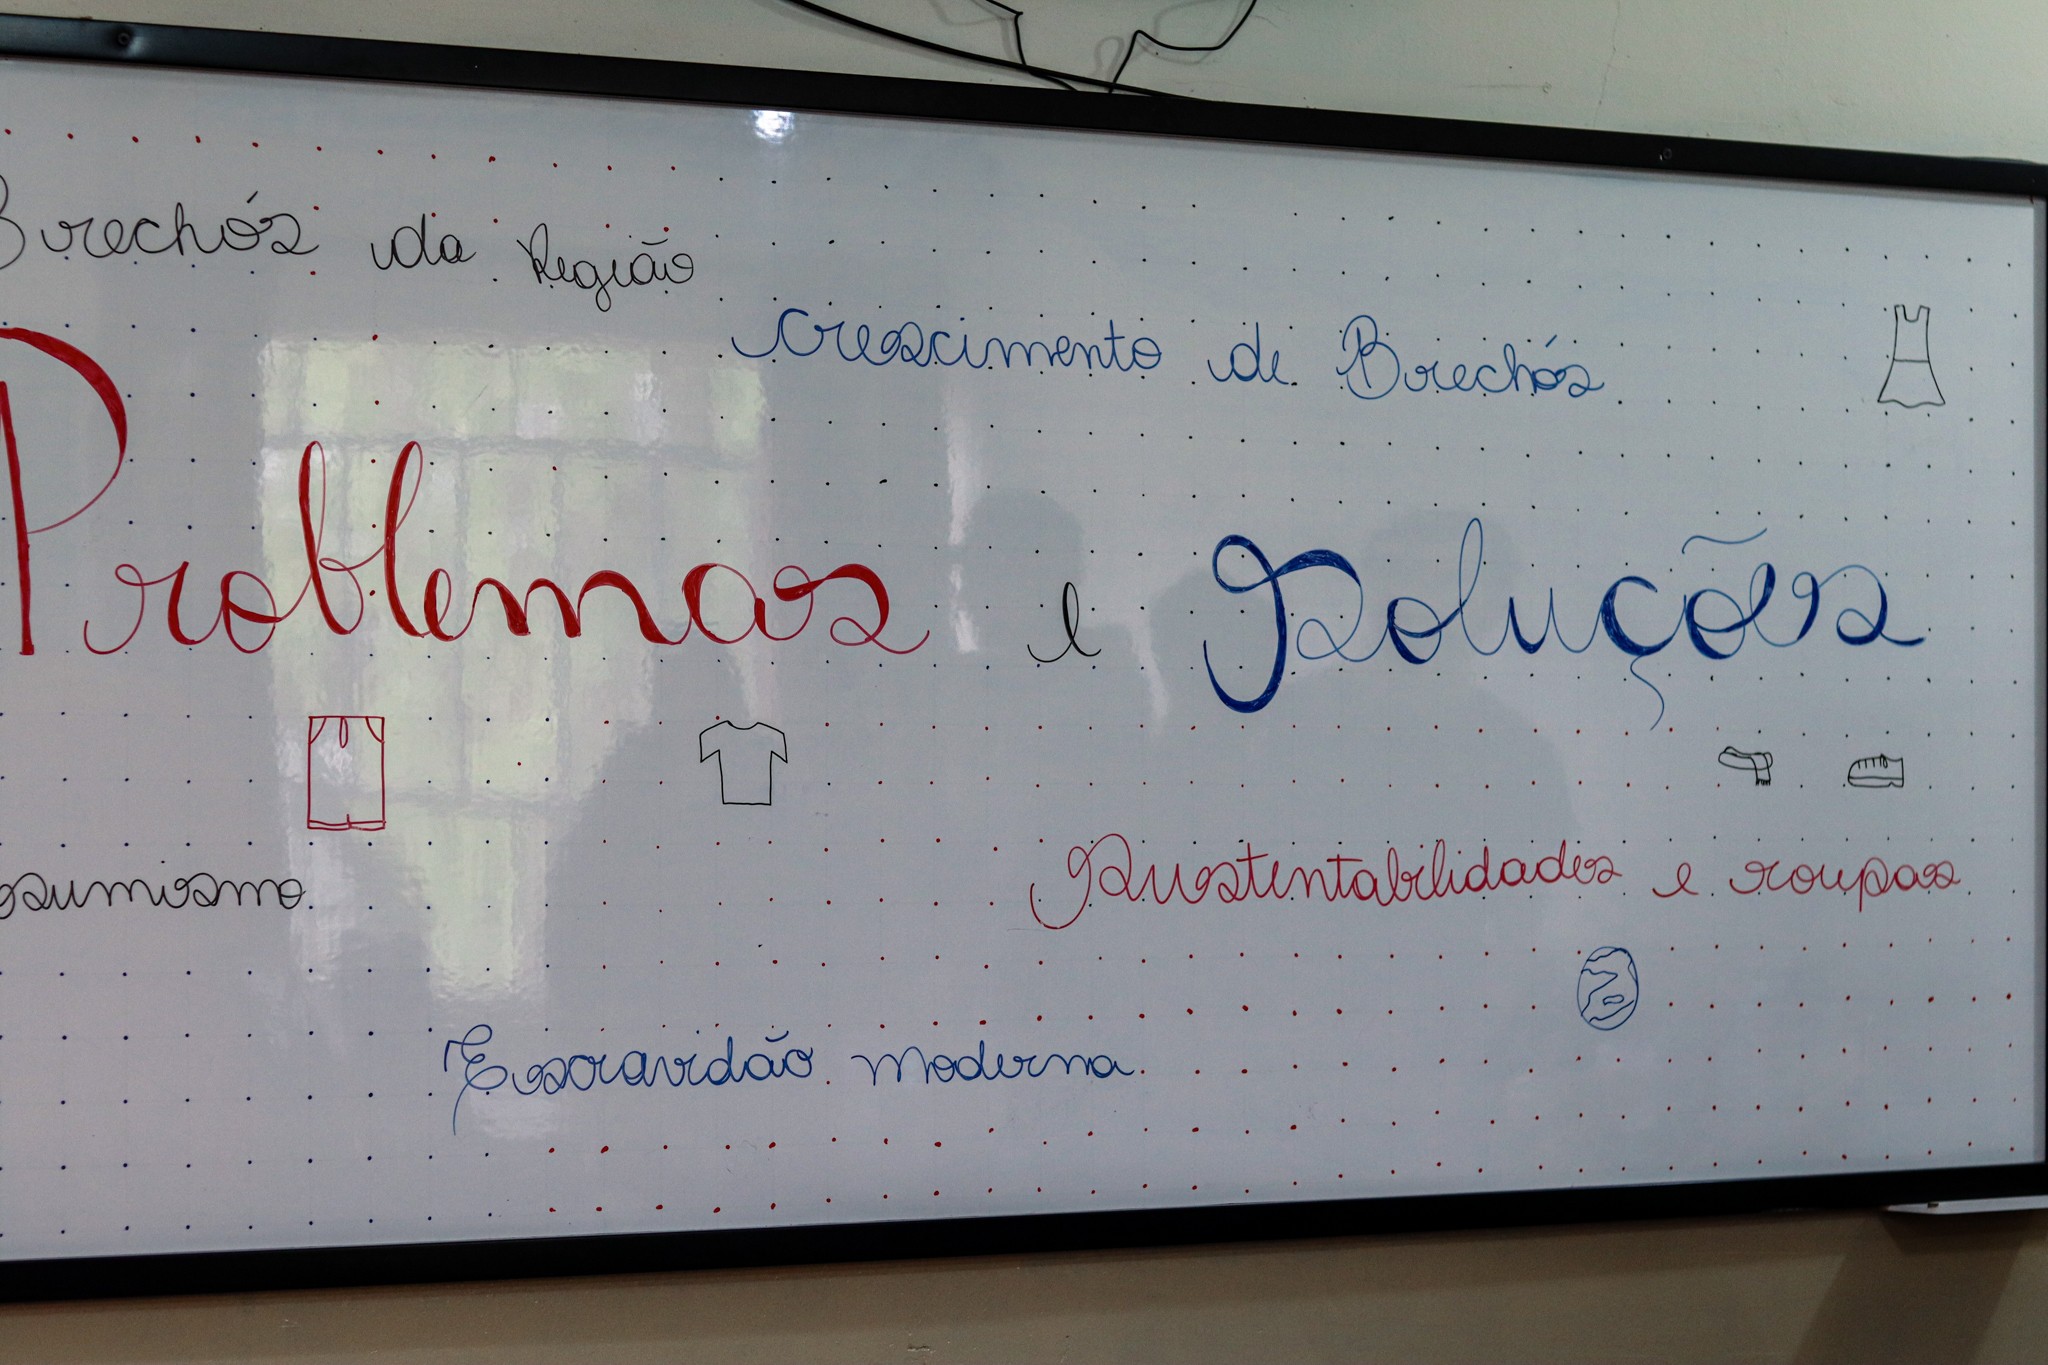 Brechós da Região
Crescimento de Brechós
Problemas e Soluções
sumismo
Sustentabilidades e roupas
Escravidão moderna